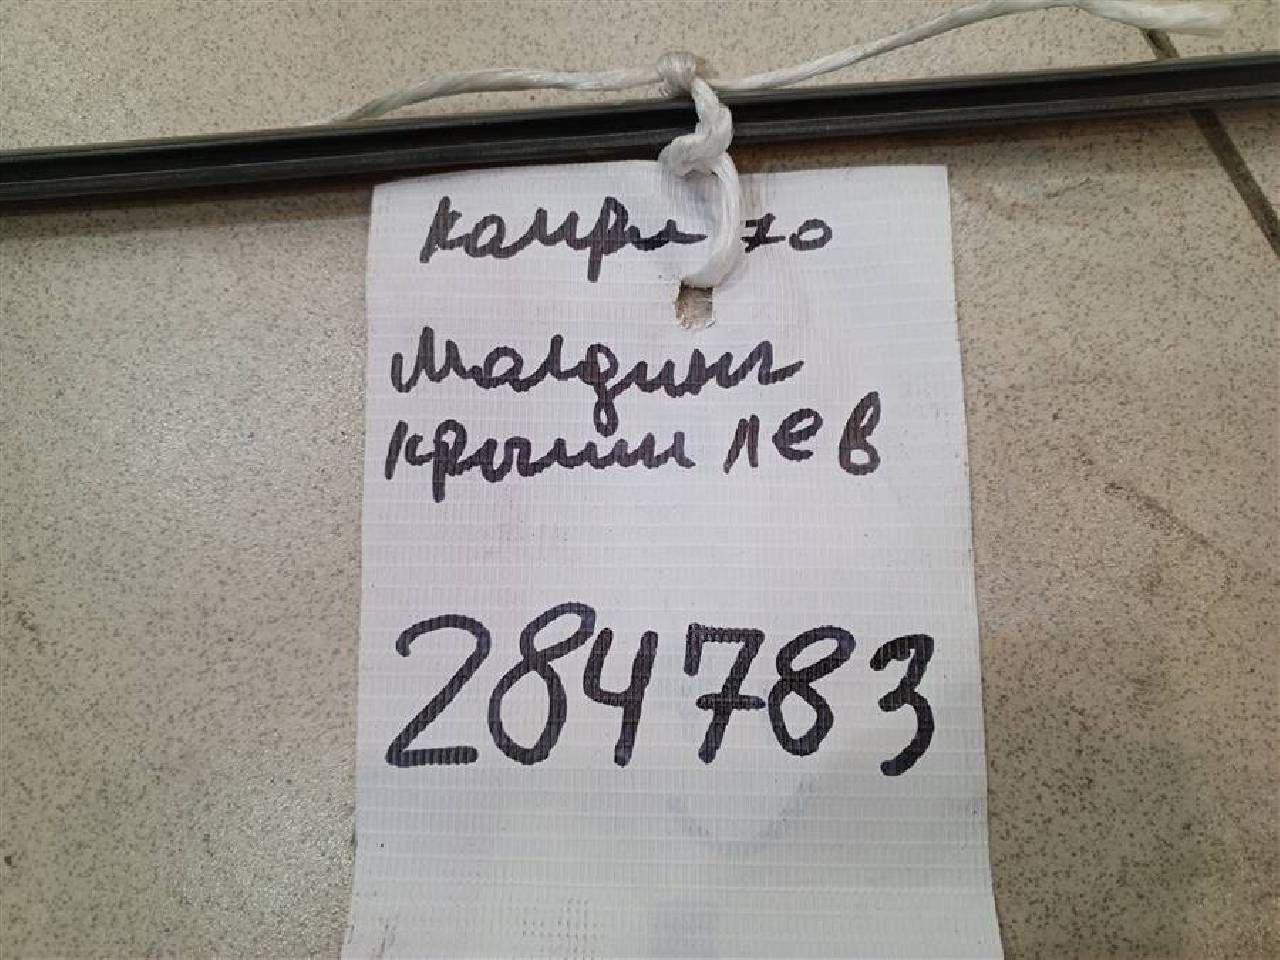 Камри 70
Малдинг
крыши лев
284783